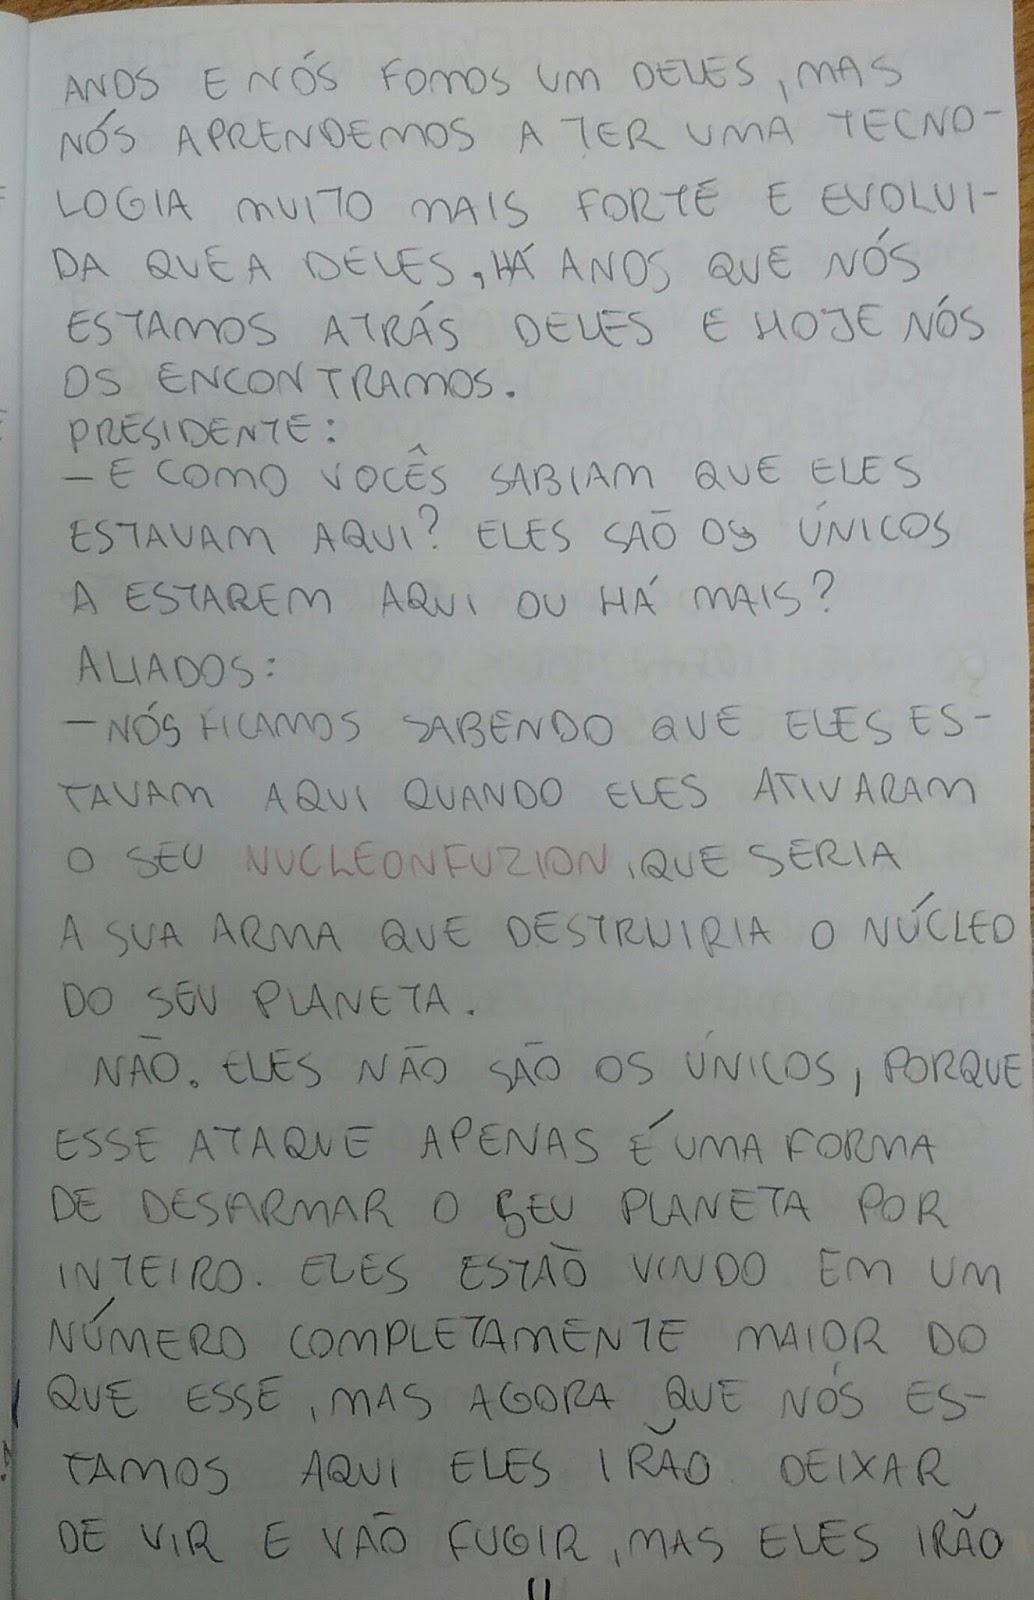 ANOS E NÓS FOMOS UM DELES, MAS
NÓS APRENDEMOS A TER UMA TECNO-
LOGIA MUITO MAIS FORTE E EVOLUI-
DA QUE A DELES, HÁ ANOS QUE NÓS
ESTAMOS ATRÁS DELES E HOJE NÓS
OS ENCONTRAMOS.
PRESIDENTE:
- E COMO VOCÊS SABIAM QUE ELES
ESTAVAM AQUI? ELES SÃO OS ÚNICOS
A ESTAREM AQUI OU HÁ MAIS?
ALIADOS:
- NÓS FICAMOS SABENDO QUE ELES ES-
TAVAM AQUI QUANDO ELES ATIVARAM
O SEU NUCLEONFUZION, QUE SERIA
A SUA ARMA QUE DESTRUIRIA O NÚCLEO
DO SEU PLANETA.
NÃO. ELES NÃO SÃO OS ÚNICOS, PORQUE
ESSE ATAQUE APENAS É UMA FORMA
DE DESARMAR O SEU PLANETA POR
INTEIRO. ELES ESTÃO VINDO EM UM
NÚMERO COMPLETAMENTE MAIOR DO
QUE ESSE, MAS AGORA QUE NÓS ES-
TAMOS AQUI ELES IRÃO DEIXAR
DE VIR E VÃO FUGIR, MAS ELES IRÃO
11